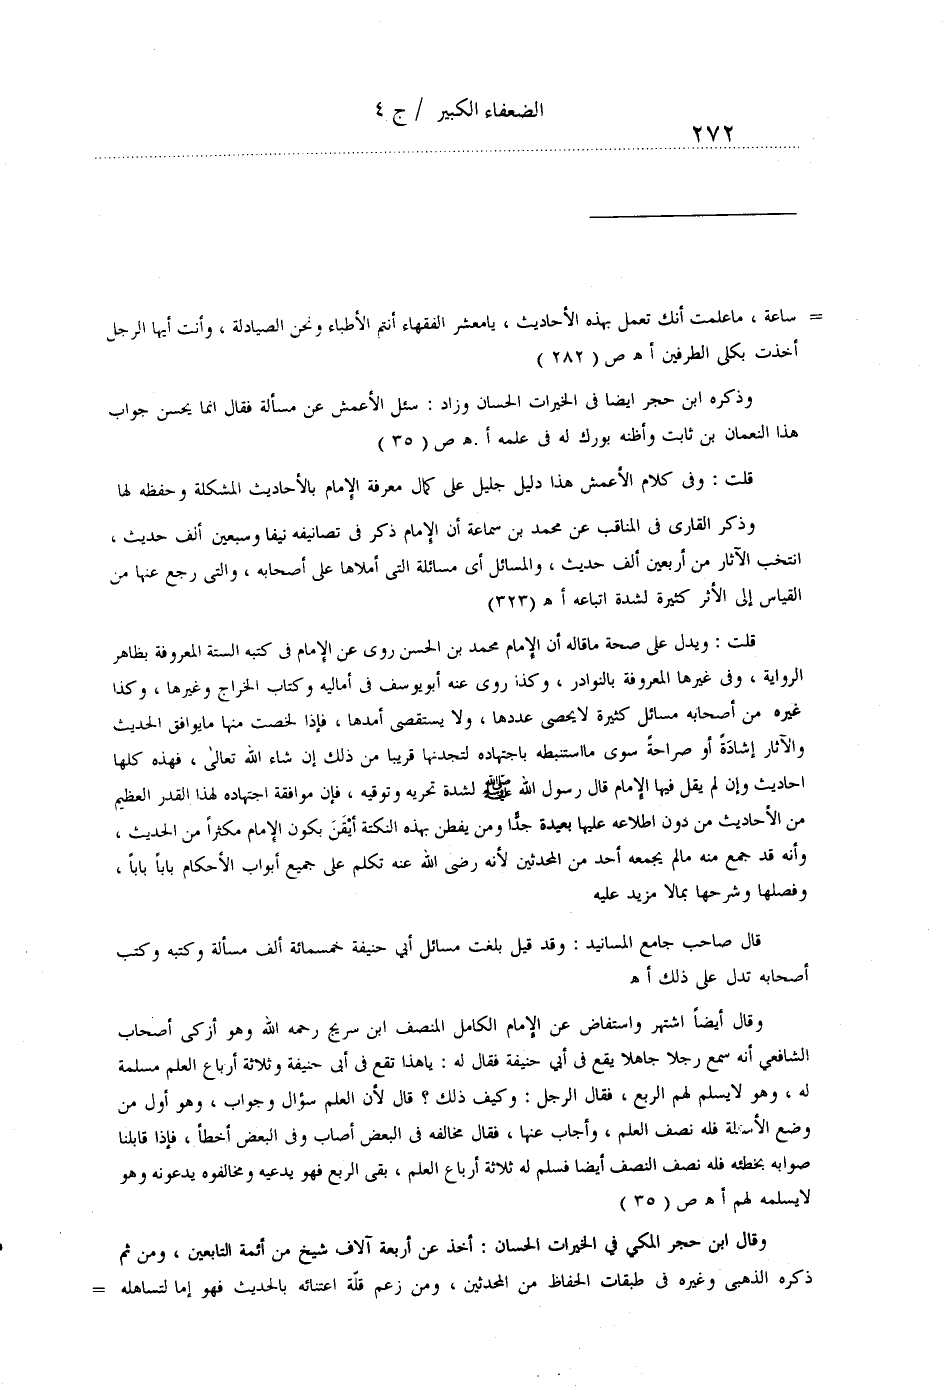 الضعفاء الكبير / ج ٤
٢٧٢
= ساعة ، ماعلمت أنك تعمل بهذه الأحاديث ، يامعشر الفقهاء أنتم الأطباء ونحن الصيادلة ، وأنت أيها الرجل
أخذت بكلى الطرفين أ ه ص ( ٢٨٢ )
وذكره ابن حجر ايضا فى الخيرات الحسان وزاد : سئل الأعمش عن مسألة فقال انما يحسن جواب
هذا النعمان بن ثابت وأظنه بورك له فى علمه أ . ه ص ( ٣٥ )
قلت : وفى كلام الأعمش هذا دليل جليل على كمال معرفة الإمام بالأحاديث المشكلة وحفظه لها
وذكر القارى فى المناقب عن محمد بن سماعة أن الإمام ذكر فى تصانيفه نيفا وسبعين ألف حديث ،
انتخب الآثار من أربعين ألف حديث ، والمسائل أى مسائلة التى أملاها على أصحابه ، والتى رجع عنها من
القياس إلى الأثر كثيرة لشدة اتباعه أ ه (٣٢٣)
قلت : ويدل على صحة ماقاله أن الإمام محمد بن الحسن روى عن الإمام فى كتبه الستة المعروفة بظاهر
الرواية ، وفى غيرها المعروفة بالنوادر ، وكذا روى عنه أبويوسف فى أماليه وكتاب الخراج وغيرها ، وكذا
غيره من أصحابه مسائل كثيرة لايحصى عددها ، ولا يستقصى أمدها ، فإذا لخصت منها مايوافق الحديث
والآثار إشادَةً أو صراحةً سوى مااستنبطه باجتهاده لتجدنها قريبا من ذلك إن شاء الله تعالىٰ ، فهذه كلها
احاديث وإن لم يقل فيها الإمام قال رسول الله ﷺ لشدة تحريه وتوقيه ، فإن موافقة اجتهاده لهذا القدر العظيم
من الأحاديث من دون اطلاعه عليها بعيدة جدًّا ومن يفطن بهذه النكتة أيْقَنَ بكون الإمام مكثراً من الحديث ،
وأنه قد جمع منه مالم يجمعه أحد من المحدثين لأنه رضى الله عنه تكلم على جميع أبواب الأحكام باباً باباً ،
وفصلها وشرحها بمالا مزيد عليه
قال صاحب جامع المسانيد : وقد قيل بلغت مسائل أبي حنيفة خمسمائة ألف مسألة وكتبه وكتب
أصحابه تدل على ذلك أ ه
وقال أيضاً اشتهر واستفاض عن الإمام الكامل المنصف ابن سريج رحمه الله وهو أزكى أصحاب
الشافعي أنه سمع رجلا جاهلا يقع في أبي حنيفة فقال له : ياهذا تقع فى أبى حنيفة وثلاثة أرباع العلم مسلمة
له ، وهو لايسلم لهم الربع ، فقال الرجل : وكيف ذلك ؟ قال لأن العلم سؤال وجواب ، وهو أول من
وضع الأسئلة فله نصف العلم ، وأجاب عنها ، فقال مخالفه فى البعض أصاب وفى البعض أخطأ ، فإذا قابلنا
صوابه بخطئه فله نصف النصف أيضا فسلم له ثلاثة أرباع العلم ، بقى الربع فهو يدعيه ومخالفوه يدعونه وهو
لايسلمه لهم أ ه ص ( ٣٥ )
وقال ابن حجر المكي في الخيرات الحسان : أخذ عن أربعة آلاف شيخ من أئمة التابعين ، ومن ثم
ذكره الذهبى وغيره فى طبقات الحفاظ من المحدثين ، ومن زعم قلّة اعتنائه بالحديث فهو إما لتساهله =